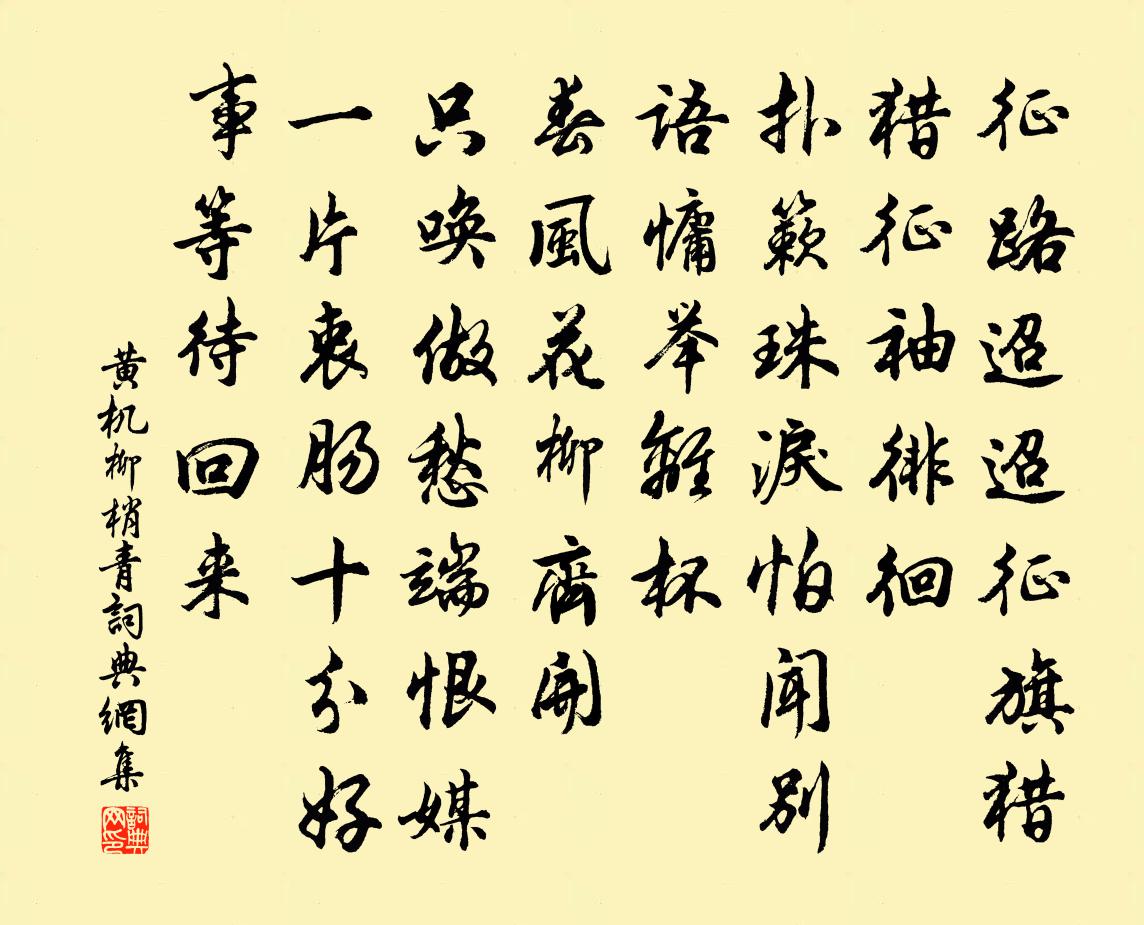 征路迢迢征旗猎
猎征袖徘徊
扑簌珠淚怕闻别
語慵举離杯
春風花柳齊開
只唤做愁端恨媒
一片衷肠十分好
事等待回来
黄机柳梢青詞典網集
詞典网印